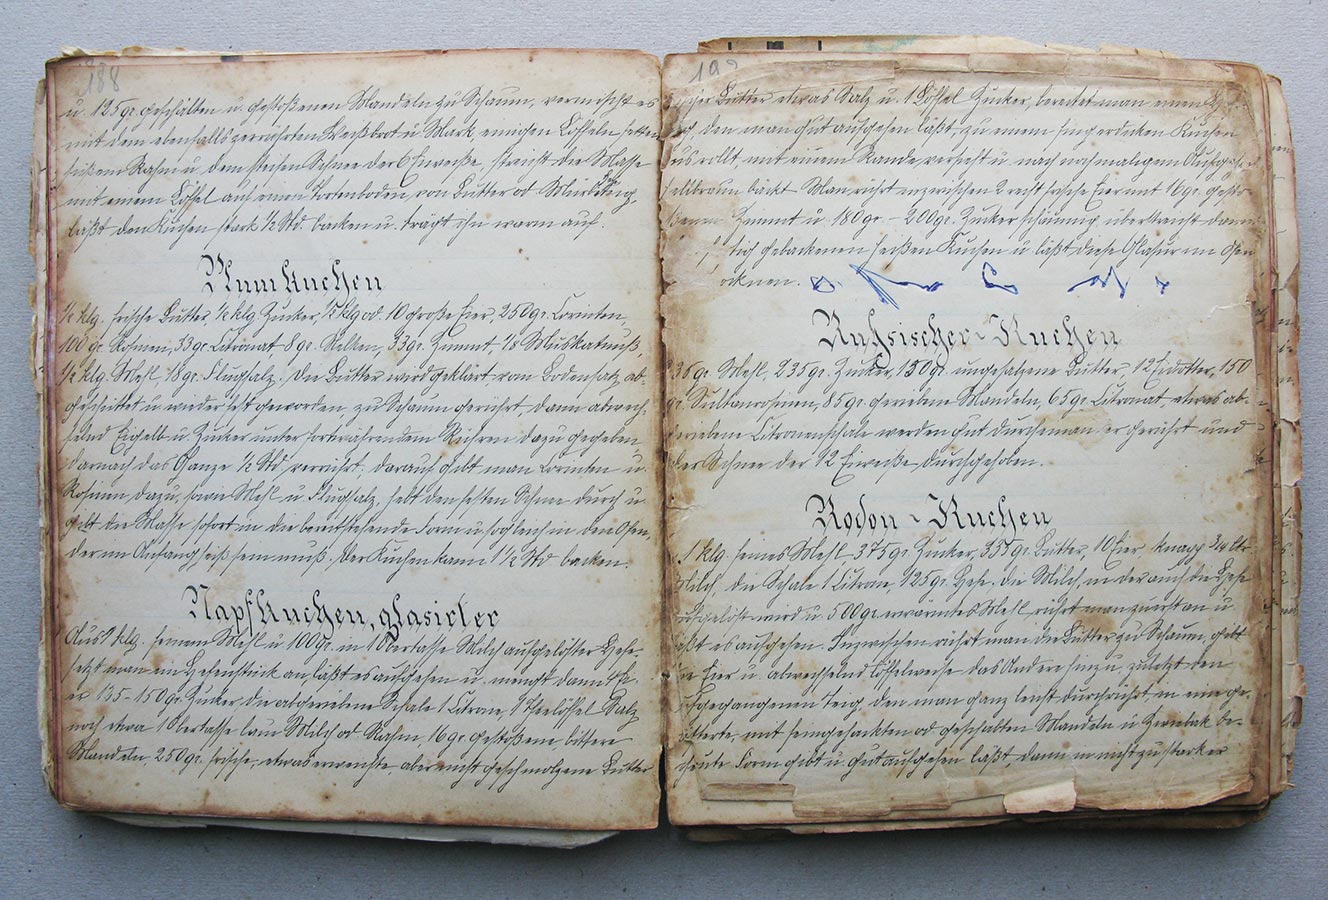 188
u. 125 gr. geschälten u. gestoßenen Mandeln zu Schaum, vermischt es
mit dem ebenfalls zerrührten Weißbrot u. Mark einigen Löffeln
süßem Rahm u. dem steifen Schnee der 6 Eiweiße, streicht die Masse
mit einem Löffel auf einen Tortenboden, von Butter od. Mürbteig,
läßt den Kuchen stark ½ Std. backen u. trägt ihn warm auf.
Plumkuchen
½ klg. frische Butter, ½ klg Zucker, ½ klg od. 10 große Eier, 250 gr. Corinten,
100 gr. Rosinen, 33 gr. Citronat, 8 gr. Nelken, 33 gr. Zimmt, ⅛ Muskatnuß,
½ klg. Mehl, 18 gr. Flugsalz. Die Butter wird geklärt vom Bodensatz ab-
geschüttet u. wieder fest geworden, zu Schaum gerührt, dann abwech-
selnd Eigelb u. Zucker unter fortwährendem Rühren dazu gegeben,
darnach das Ganze ½ Std. verrührt, darauf gibt man Corinten u.
Rosinen dazu, sowie Mehl u. Flugsalz, hebt den festen Schnee durch u.
gibt die Masse sofort in die bereitstehende Form u. sogleich in den Ofen,
der im Anfang heiß sein muß. Der Kuchen kann 1½ Std. backen.
Napfkuchen, glasirter
Aus 1 klg. feinem Mehl u. 100 gr. in 1 Obertasse Milch aufgelöster Hefe
setzt man ein Hefenstück an, läßt es aufgehen u. mengt dann
135-150 gr. Zucker die abgeriebene Schale 1 Citrone, 1 Theelöffel Salz
noch etwa 1 Obertasse lau Milch od. Rahm, 16 gr. gestoßene, bittere
Mandeln, 250 gr. frische, etwas erweichte, aber nicht geschmolzene Butter
Butter etwas Salz u. 1 Löffel Zucker, bereitet man einen
den man gut aufgehen läßt, zu einem fingerdicken Kuchen
ausrollt mit einem Rande versieht u. nach nochmaligem
hellbraun bäckt. Man rührt inzwischen 2 recht frische Eier mit 16 gr.
Zimmt u. 180 gr. - 200 gr. Zucker schäumig, überstreicht
gebackenen heißen Kuchen u. läßt diese Glasur im Ofen
trocknen.
Rußsischer-Kuchen
235 gr. Mehl, 235 gr. Zucker, 150 gr. ungesalzene Butter 12 Eidotter, 150
gr. Sultanrosinen, 85 gr. geriebene Mandeln, 65 gr. Citronat, etwas ab-
geriebene Citronenschale werden gut durcheinander gerührt und
der Schnee der 12 Eiweiße durchgehoben.
Rodon-Kuchen
1 klg. feines Mehl 375 gr. Zucker, Butter, 10 Eier, knapp ¾ Ltr.
Milch, die Schale 1 Citron, 125 gr. Hefe, die Milch, in der auch die Hefe
aufgelöst wird u. 500 gr. erwärmtes Mehl rührt man zuerst an u.
läßt es aufgehen. Inzwischen rührt man die Butter zu Schaum, gibt
die Eier u. abwechselnd löffelweise das Andere hinzu, zuletzt den
aufgegangenen Teig, den man ganz leicht durchrührt in eine ge-
butterte, mit feingehackten od. geschälten Mandeln u. Zwiebak be-
streute Form gibt u. gut aufgehen läßt, dann in nicht zu starker